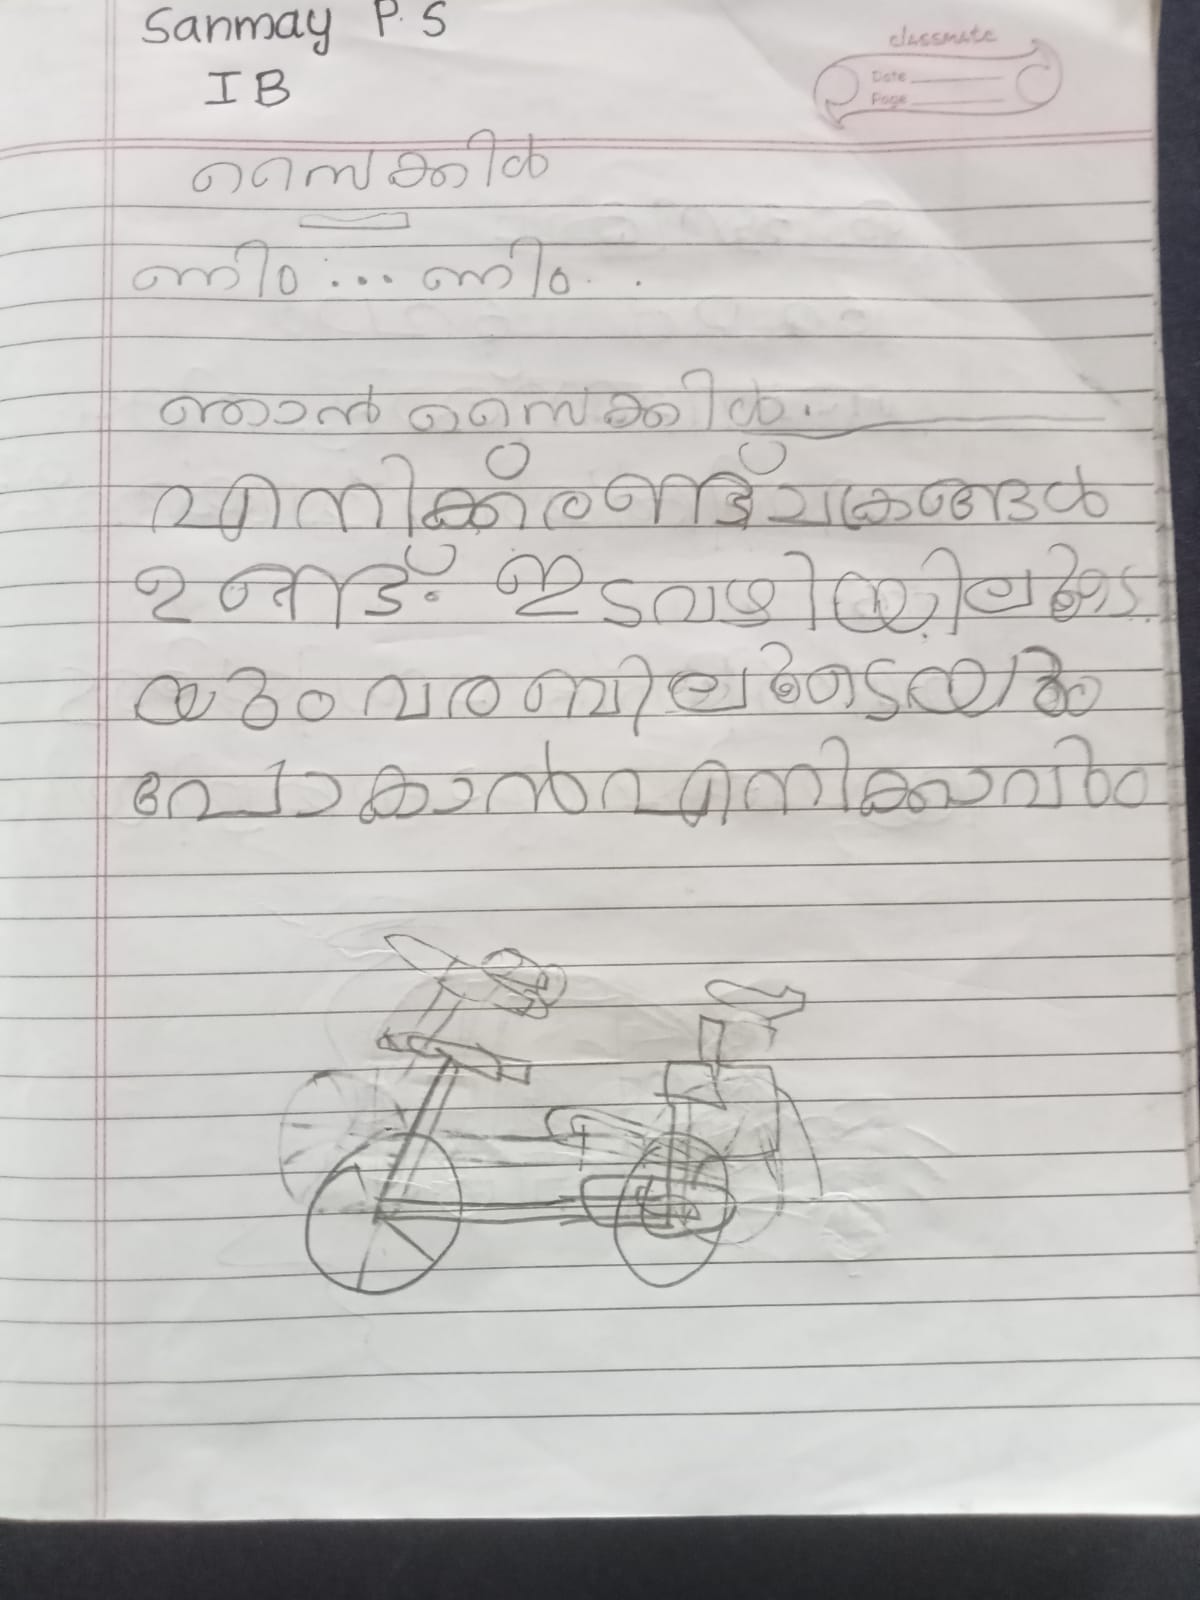 Sanmay P. S
I B
classmate
Date
Page
സൈക്കിൾ
ണിം ... ണിം . .
ഞാൻ സൈക്കിൾ.
എനിക്ക് രണ്ട് ചക്രങ്ങൾ
ഉണ്ട്. ഇടവഴിയിലൂടെ
യും വരമ്പിലൂടെയും
പോകാൻ എനിക്കാവും